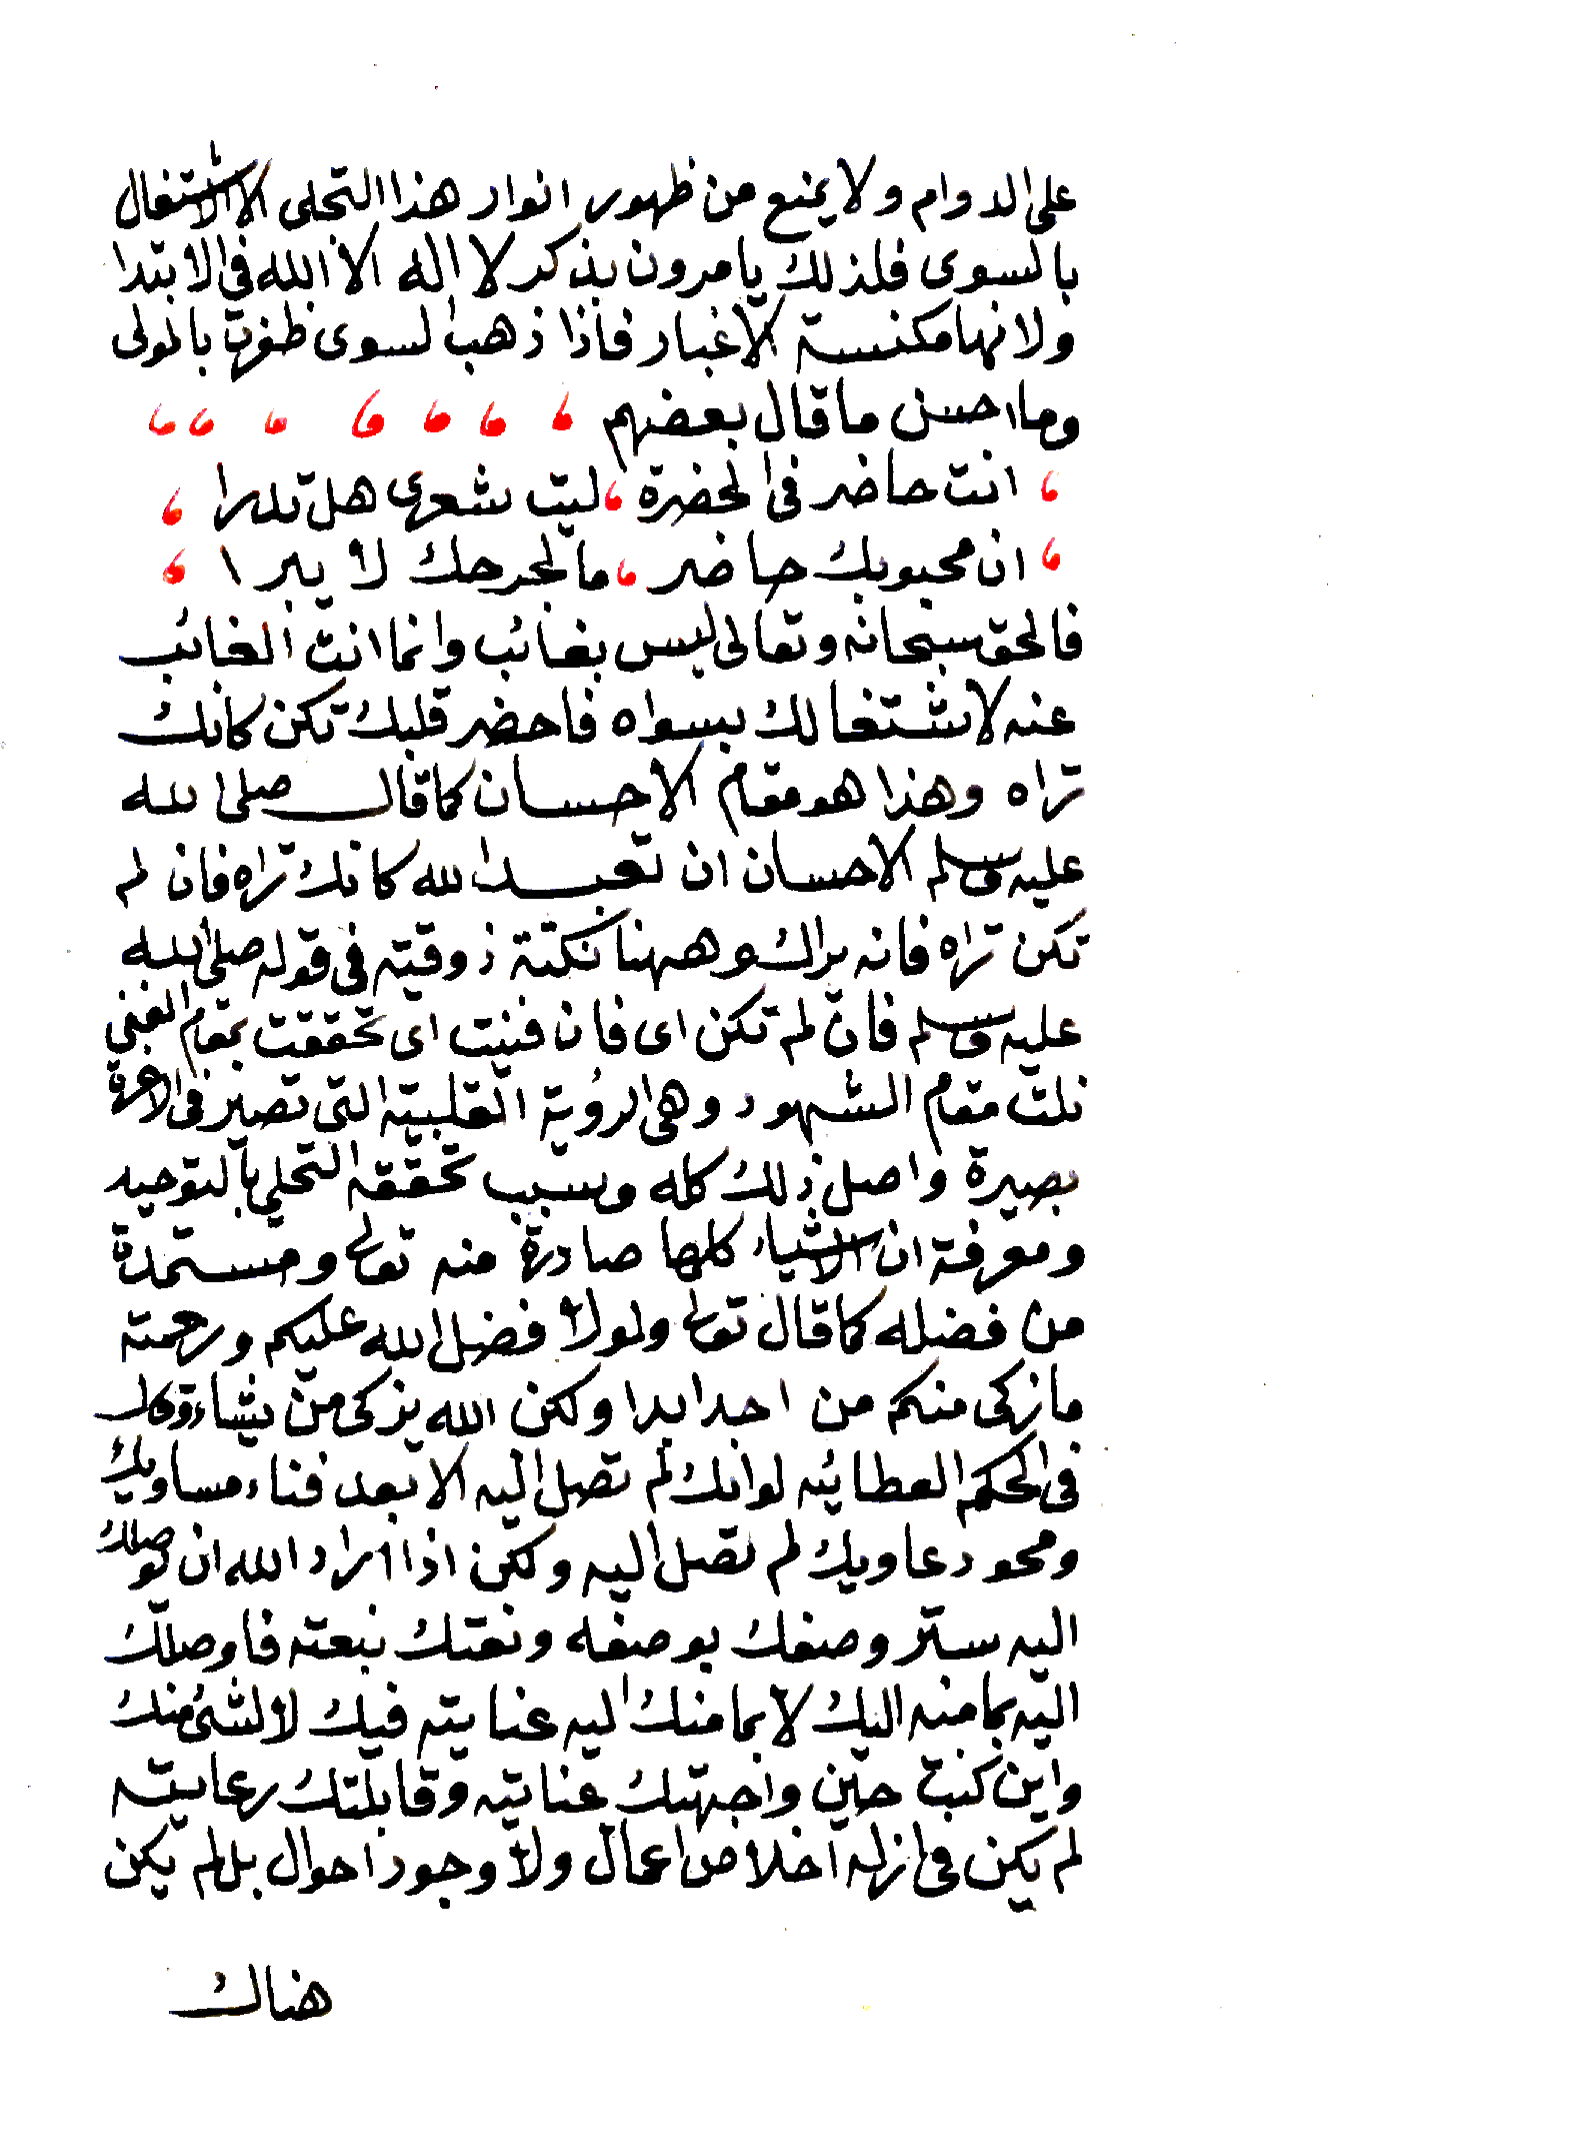 على الدوام ولا يمنع من ظهور انوار هذا التجلى الا الاشتغال
بالسوى فلذلك يامرون بذكر لا اله الا الله فى الابتدا
ولانها مكنسة الاغيار فاذا ذهب السوى ظفرت بالمولى
وما احسن ما قال بعضهم
انت حاضر فى الحضرة ، ليت شعرى هل تدرا ،
ان محبوبك حاضر ، ما لجرحك لا يبرا ،
فالحق سبحانه وتعالى ليس بغائب وانما انت الغائب
عنه لاشتغالك بسواه فاحضر قلبك تكن كانك
تراه وهذا هو مقام الاحسان كما قال صلى الله
عليه وسلم الاحسان ان تعبد الله كانك تراه فان لم
تكن تراه فانه يراك وههنا نكتة ذوقيه فى قوله صلى الله
عليه وسلم فان لم تكن اى فان فنيت اى تحققت بمقام الفنى
نلت مقام الشهود وهى الرؤية القلبيه التى تصير فى الاخرة
بصيرة واصل ذلك كله وسبب تحققه التحلى بالتوحيد
ومعرفة ان الاشياء كلها صادرة منه تعالى ومستمدة
من فضله كما قال تعالى ولولا فضل الله عليكم ورحمته
ما زكى منكم من احد ابدا ولكن الله يزكى من يشاء وقال
فى الحكم العطائيه لو انك لم تصل اليه الا بعد فناء مساويك
ومحو دعاويك لم تصل اليه ولكن اذا اراد الله ان يوصلك
اليه ستر وصفك بوصفه ونعتك بنعته فاوصلك
اليه بما منه اليك لا بما منك اليه عنايته فيك لا لشئ منك
واين كنت حين واجهتك عنايته وقابلتك رعايته
لم يكن فى ازله اخلاص اعمال ولا وجود احوال بل لم يكن
هناك